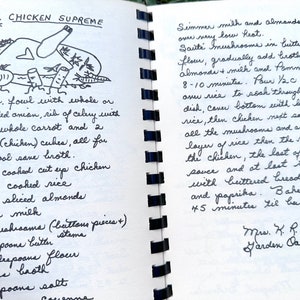 CHICKEN SUPREME
fowl with whole or
onion, rib of celery with
whole carrot and 2
(chicken) cubes, all for
cool save broth.
cooked cut up chicken
cooked rice
sliced almonds
milk
mushrooms (buttons pieces &
stems
spoons butter
spoons flour
broth
spoons salt
cayenne
Simmer milk and almonds
over very low heat.
Sauté mushrooms in butter
flour, gradually add broth
almonds & milk and
8-10 minutes. Pour 1/2 C.
over rice to soak through
dish, cover bottom with
rice, then chicken next
all the mushrooms and a
layer of rice then the
the chicken, the last
sauce and at last
with buttered bread
and paprika. Bake
45 minutes til
Mrs. K R
Garden